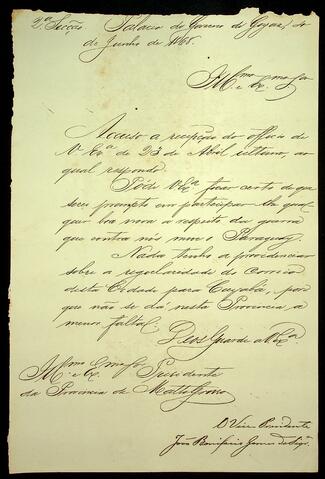 2ª Secção Palacio do Governo de Goyaz,
de Junho de 1868.
Illmo. e Ex. mo Snr.
Accuso a recepção do officio de
V. Exª. de 23 de Abril ultimo, ao
qual respondo.
Póde V. Exª. ficar certo de que
serei prompto em participar-lhe qual-
quer boa nova a respeito da guerra
que contra nós move o Paraguay.
Nada tenho a providenciar
sobre a regularidade do correio
desta Cidade para Cuyabá, por
que não se dá nesta Provincia a
menor falta.
Deos Guarde a V. Exª.
Illmo. e Ex. mo Snr. Presidente
da Provincia de Matto Grosso
O Vice Presidente
João Bonifacio Gomes de Siqª.